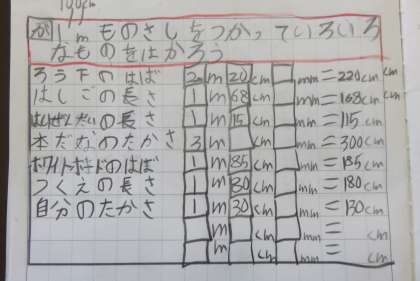 が 1mものさしをつかっていろいろ
なものをはかろう
ろう下のはば 2m20cm mm=220cm
はしごの長さ 1m68cm mm=168cm
の長さ 1m15cm mm=115cm
本だなのたかさ 3m cm mm=300cm
ホワイトボードのはば 1m85cm mm=185cm
つくえの長さ 1m80cm mm=180cm
自分のたかさ 1m30cm mm=130cm
m cm mm= cm
m cm mm= cm